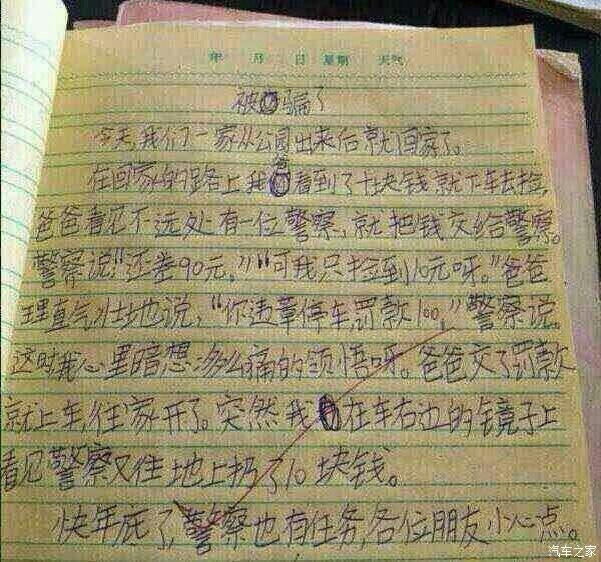 年 月 日 星期 天气
被骗了
今天,我们一家从公园出来后就回家了。
在回家的路上我看到了十块钱就下车去捡,
爸爸看见不远处有一位警察,就把钱交给警察。
警察说“还差90元,”“可我只捡到10元呀。”爸爸
理直气壮地说,“你违章停车罚款100,”警察说。
这时我心里暗想:多么痛的领悟呀。爸爸交了罚款
就上车往家开了。突然我在车右边的镜子上
看见警察又往地上扔了10块钱。
快年底了,警察也有任务,各位朋友小心点。
汽车之家